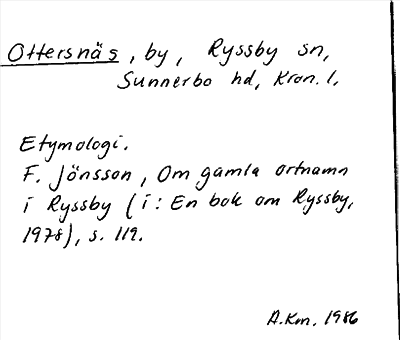 Ottersnäs, by, Ryssby sn,
Sunnerbo hd, Kron. l.
Etymologi.
F. Jönsson, Om gamla ortnamn
i Ryssby (i: En bok om Ryssby,
1978), s. 119.
A.Km. 1986